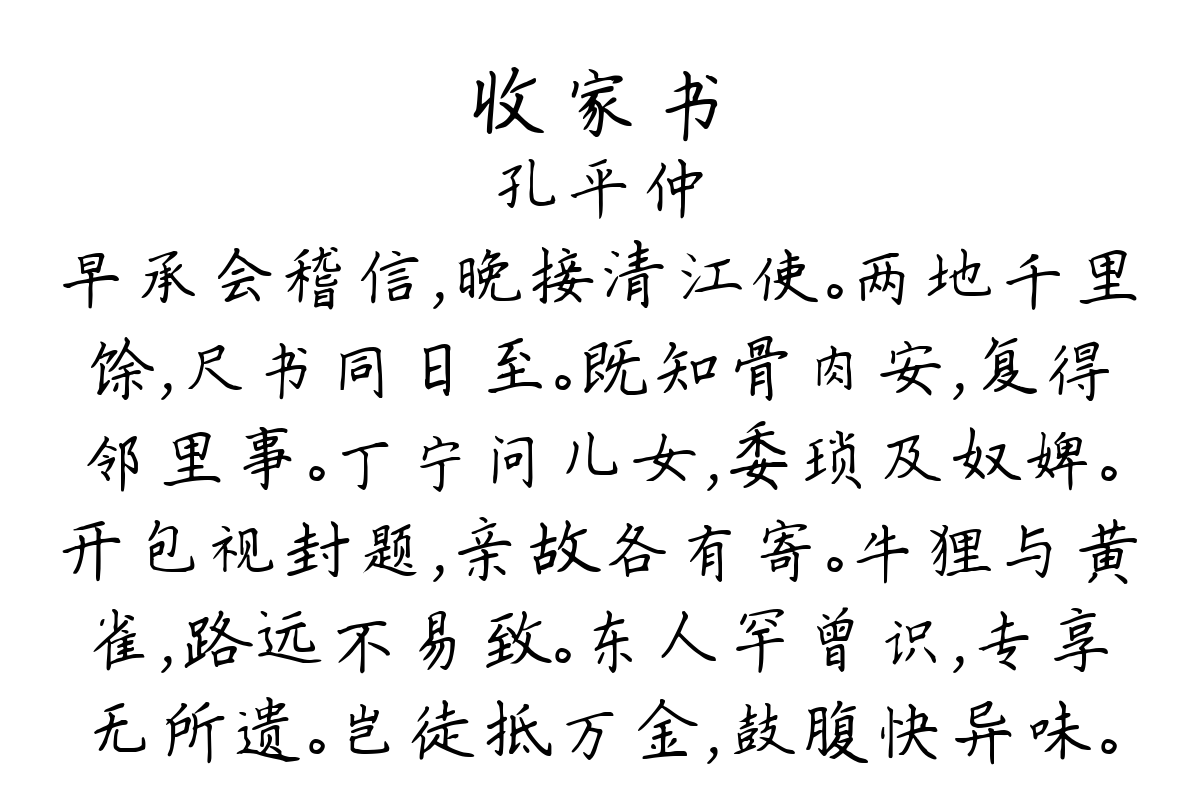 收家书
孔平仲
早承会稽信,晚接清江使。两地千里
馀,尺书同日至。既知骨肉安,复得
邻里事。丁宁问儿女,委琐及奴婢。
开包视封题,亲故各有寄。牛狸与黄
雀,路远不易致。东人罕曾识,专享
无所遗。岂徒抵万金,鼓腹快异味。